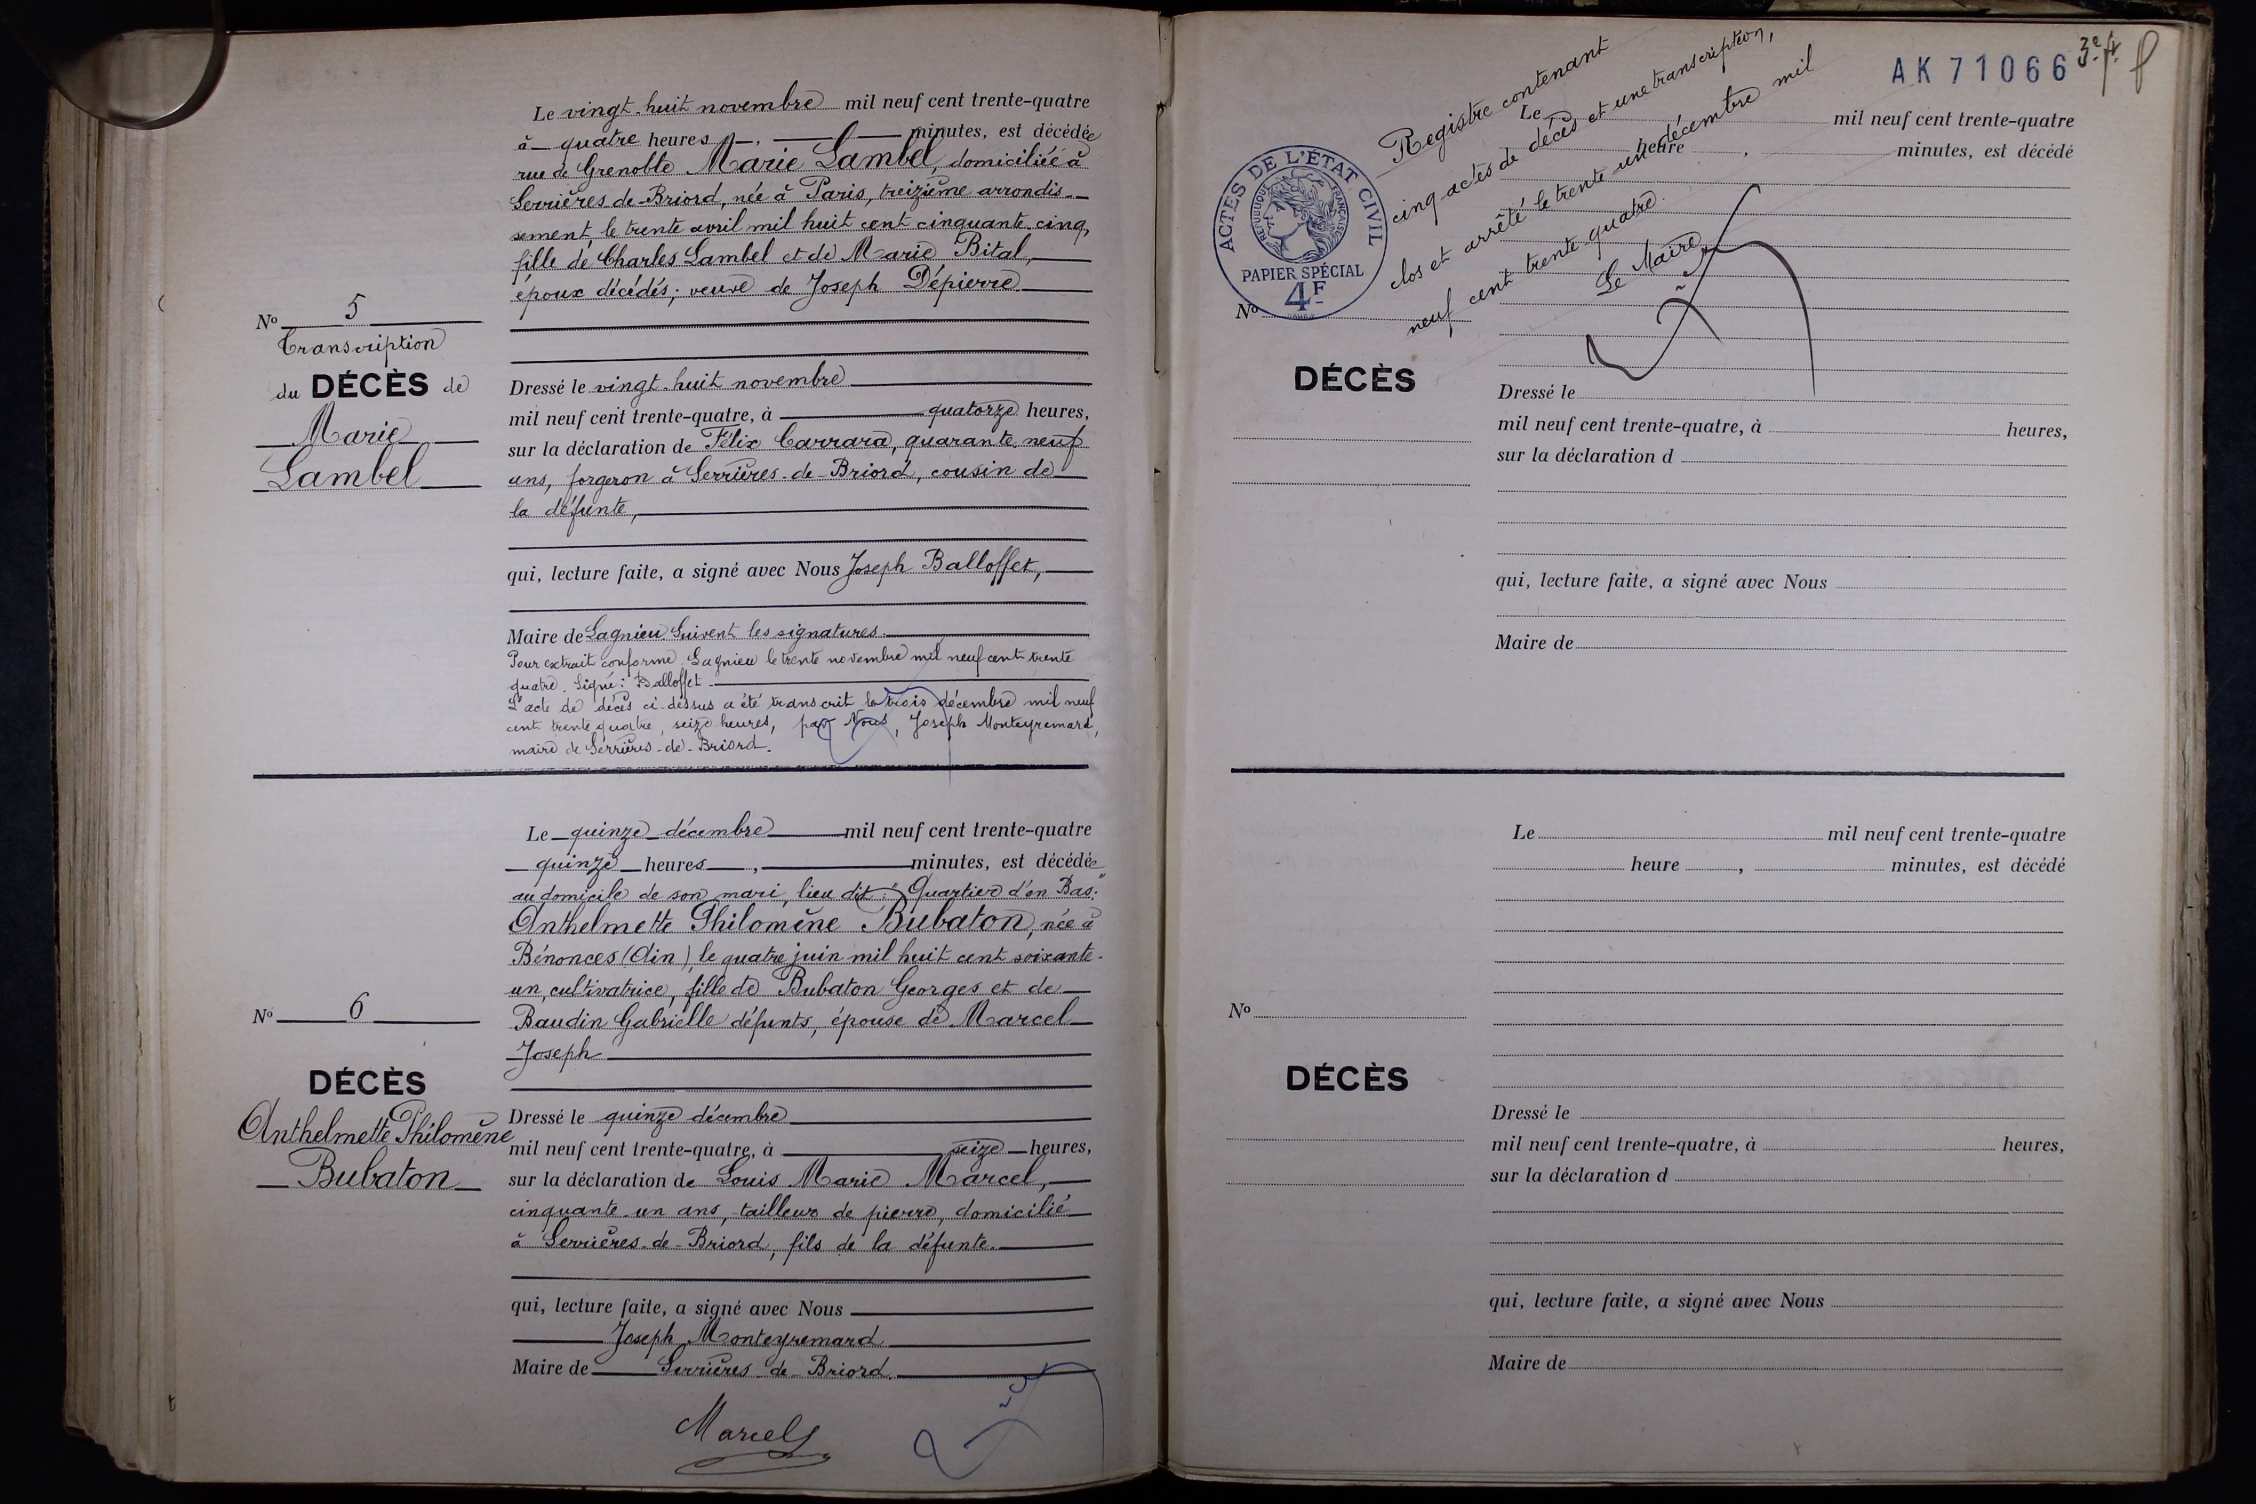 Le vingt-huit novembre mil neuf cent trente-quatre
à quatre heures, minutes, est décédée
rue de Grenoble Marie Lambel, domiciliée à
Serrières-de-Briord, née à Paris, treizième arrondis-
sement, le trente avril mil huit cent cinquante-cinq,
fille de Charles Lambel et de Marie Bital,
époux décédés; veuve de Joseph Dépierre
No 5
Transcription
du DÉCÈS de
Marie
Lambel
Dressé le vingt-huit novembre
mil neuf cent trente-quatre, à quatorze heures,
sur la déclaration de Félix Carrara, quarante neuf
ans, forgeron à Serrières-de-Briord, cousin de
la défunte,
qui, lecture faite, a signé avec Nous Joseph Balloffet,
Maire de Lagnieu. Suivent les signatures.
Pour extrait conforme. Lagnieu le trente novembre mil neuf cent trente
quatre. Signé: Balloffet.
L'acte de décès ci-dessus a été transcrit le trois décembre mil neuf
cent trente quatre, seize heures, par Nous, Joseph Monteyremard,
maire de Serrières-de-Briord.
Le quinze décembre mil neuf cent trente-quatre
quinze heures, minutes, est décédée
au domicile de son mari, lieu dit: "Quartier d'en Bas:"
Anthelmette Philomène Bubaton, née à
Bénonces (Ain), le quatre juin mil huit cent soixante-
un, cultivatrice, fille de Bubaton Georges et de
Baudin Gabrielle défunts, épouse de Marcel
Joseph
No 6
DÉCÈS
Anthelmette Philomène
Bubaton
Dressé le quinze décembre
mil neuf cent trente-quatre, à seize heures,
sur la déclaration de Louis Marie Marcel,
cinquante-un ans, tailleur de pierre, domicilié
à Serrières-de-Briord, fils de la défunte.
qui, lecture faite, a signé avec Nous
Joseph Monteyremard
Maire de Serrières-de-Briord.
Marcel
AK 71066
3e f.
Registre contenant
cinq actes de décès et une transcription,
clos et arrêté le trente un décembre mil
neuf cent trente-quatre.
Le Maire
ACTES DE L'ÉTAT CIVIL
RÉPUBLIQUE FRANÇAISE
PAPIER SPÉCIAL
4F
Le mil neuf cent trente-quatre
heure , minutes, est décédé
No
DÉCÈS
Dressé le
mil neuf cent trente-quatre, à heures,
sur la déclaration d
qui, lecture faite, a signé avec Nous
Maire de
Le mil neuf cent trente-quatre
heure , minutes, est décédé
No
DÉCÈS
Dressé le
mil neuf cent trente-quatre, à heures,
sur la déclaration d
qui, lecture faite, a signé avec Nous
Maire de